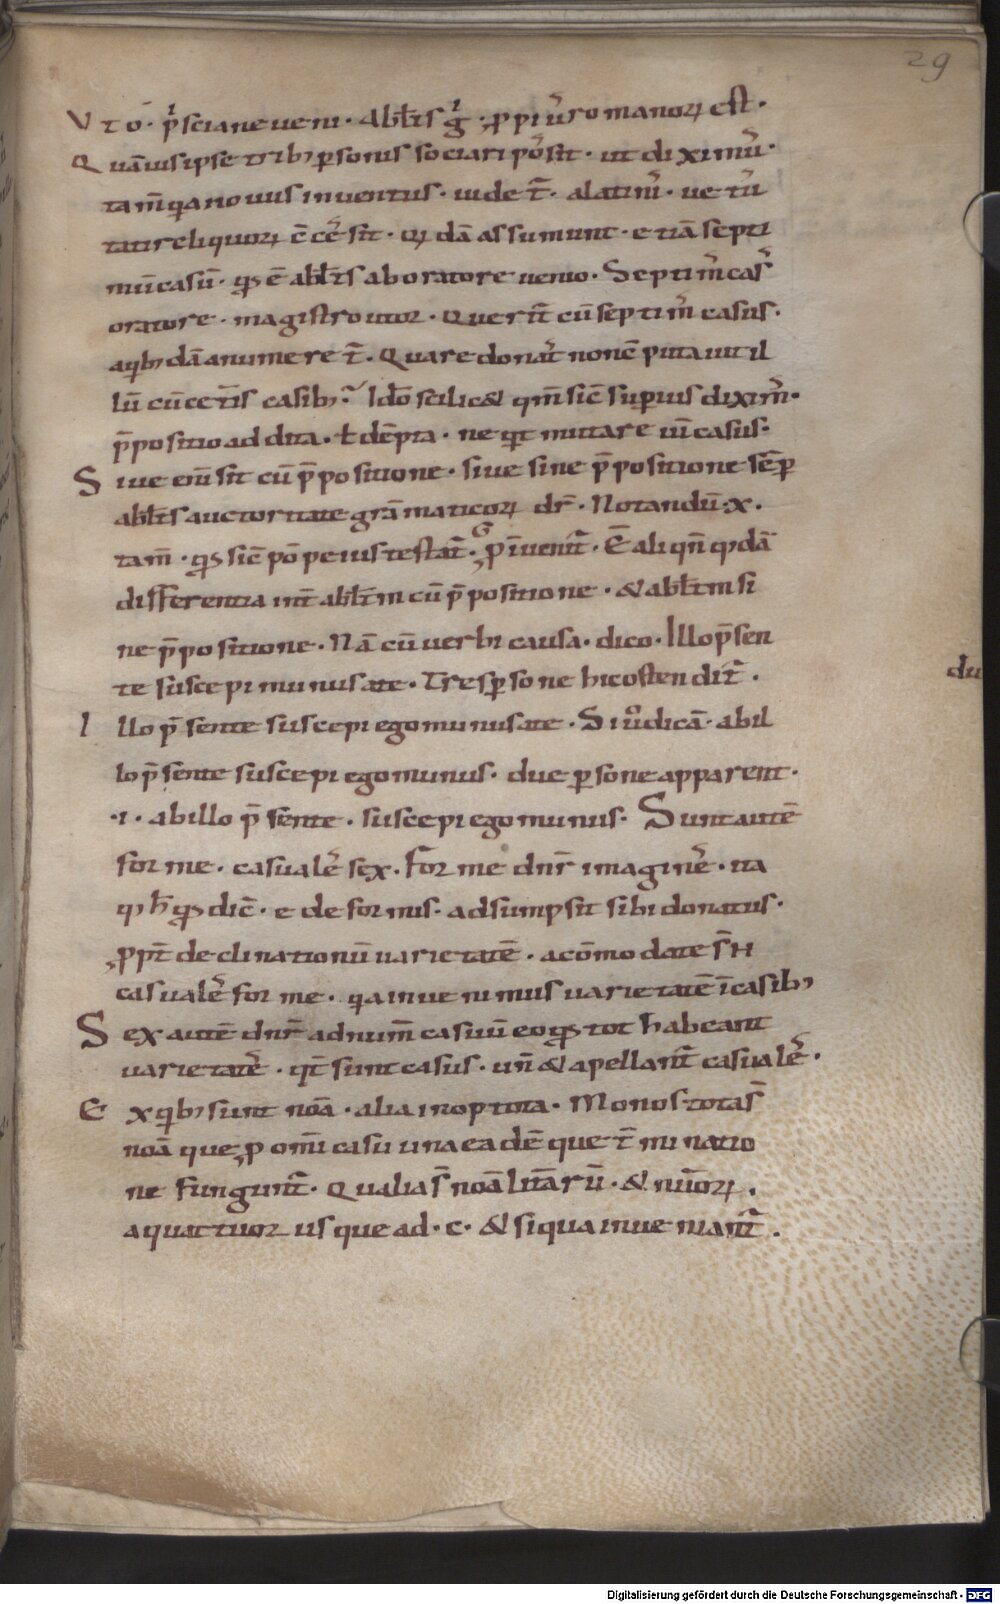 29
V to· p̄sciane ueni· Abłtis g̊· ꝓpriꝰ romanoꝝ est·
Q uāuis ipse tribꝫ ꝑsonis sociari pōsit· ut diximꝰ·
tam̄ q̇a nouus inuentus· uidet̄· a latinis· uetus
tati reliquoꝝ c̄cēsit· Qꝫdā assumunt· etiā septi
mū casū· qđ ē abłtis ab oratore uenio· Septim̄ casꝰ
oratore· magistro utor· Querit̄ cū septim̄ casus·
a q̇bꝫdā anumeret̄· Quare donatꝰ non ē putauit il
lū cū cet̄is casibꝫ? Ido scilic& qm̄ sic̄ superius diximꝰ·
p̄positio addita· ł dēpta· neq̇t mutare uī casus·
S iue eni sit cū p̄positione· siue sine p̄positione sēꝑ
abłtis auctoritate grāmaticoꝝ dr̄· Notandū·x·
tam̄· qđ sic̄ pōpeius testat̄· ꝑ inuenit̄· Ē aliqn̄ qꝫdā
differentia int̄ abłtm cū p̄positione· & abłtm si
ne p̄positione· Nā cū uerbi causa· dico· Illo p̄sen
te suscepi munus a te· Tres ꝑsone hic ostendit̄·
du
I llo p̄sente suscepi ego munus a te· Si ů dicā· ab il
lo p̄sente suscepi ego munus· due ꝑsone apparent·
·i· ab illo p̄sente· suscepi ego munus· Sunt autē
forme· casualēs sex· Forme dn̄r imaginēs· ita
qꝫ h̄ qđ dic̄· e de formis· adsumpsit sibi donatus·
ꝓpt̄ declinationū uarietatē· acōmodate s̄ H
casualēs forme· q̇a inuenimus uarietatē ī casibꝫ
S ex autē dn̄r ad num̄ casuū eo qđ tot habeant
uarietatēs· qt̄ sunt casus· un̄ & apellant̄ casualēs·
E x q̇bꝫ sunt noā· alia inoptota· Monostota s̄
noā que ꝓ omi casu una eadē que t̄minatio
ne fungunt̄· Qualia s̄ noā litarū· & nūoꝝ·
a quattuor usque ad·c· & si qua inueniant̄·
Digitalisierung gefördert durch die Deutsche Forschungsgemeinschaft - DFG